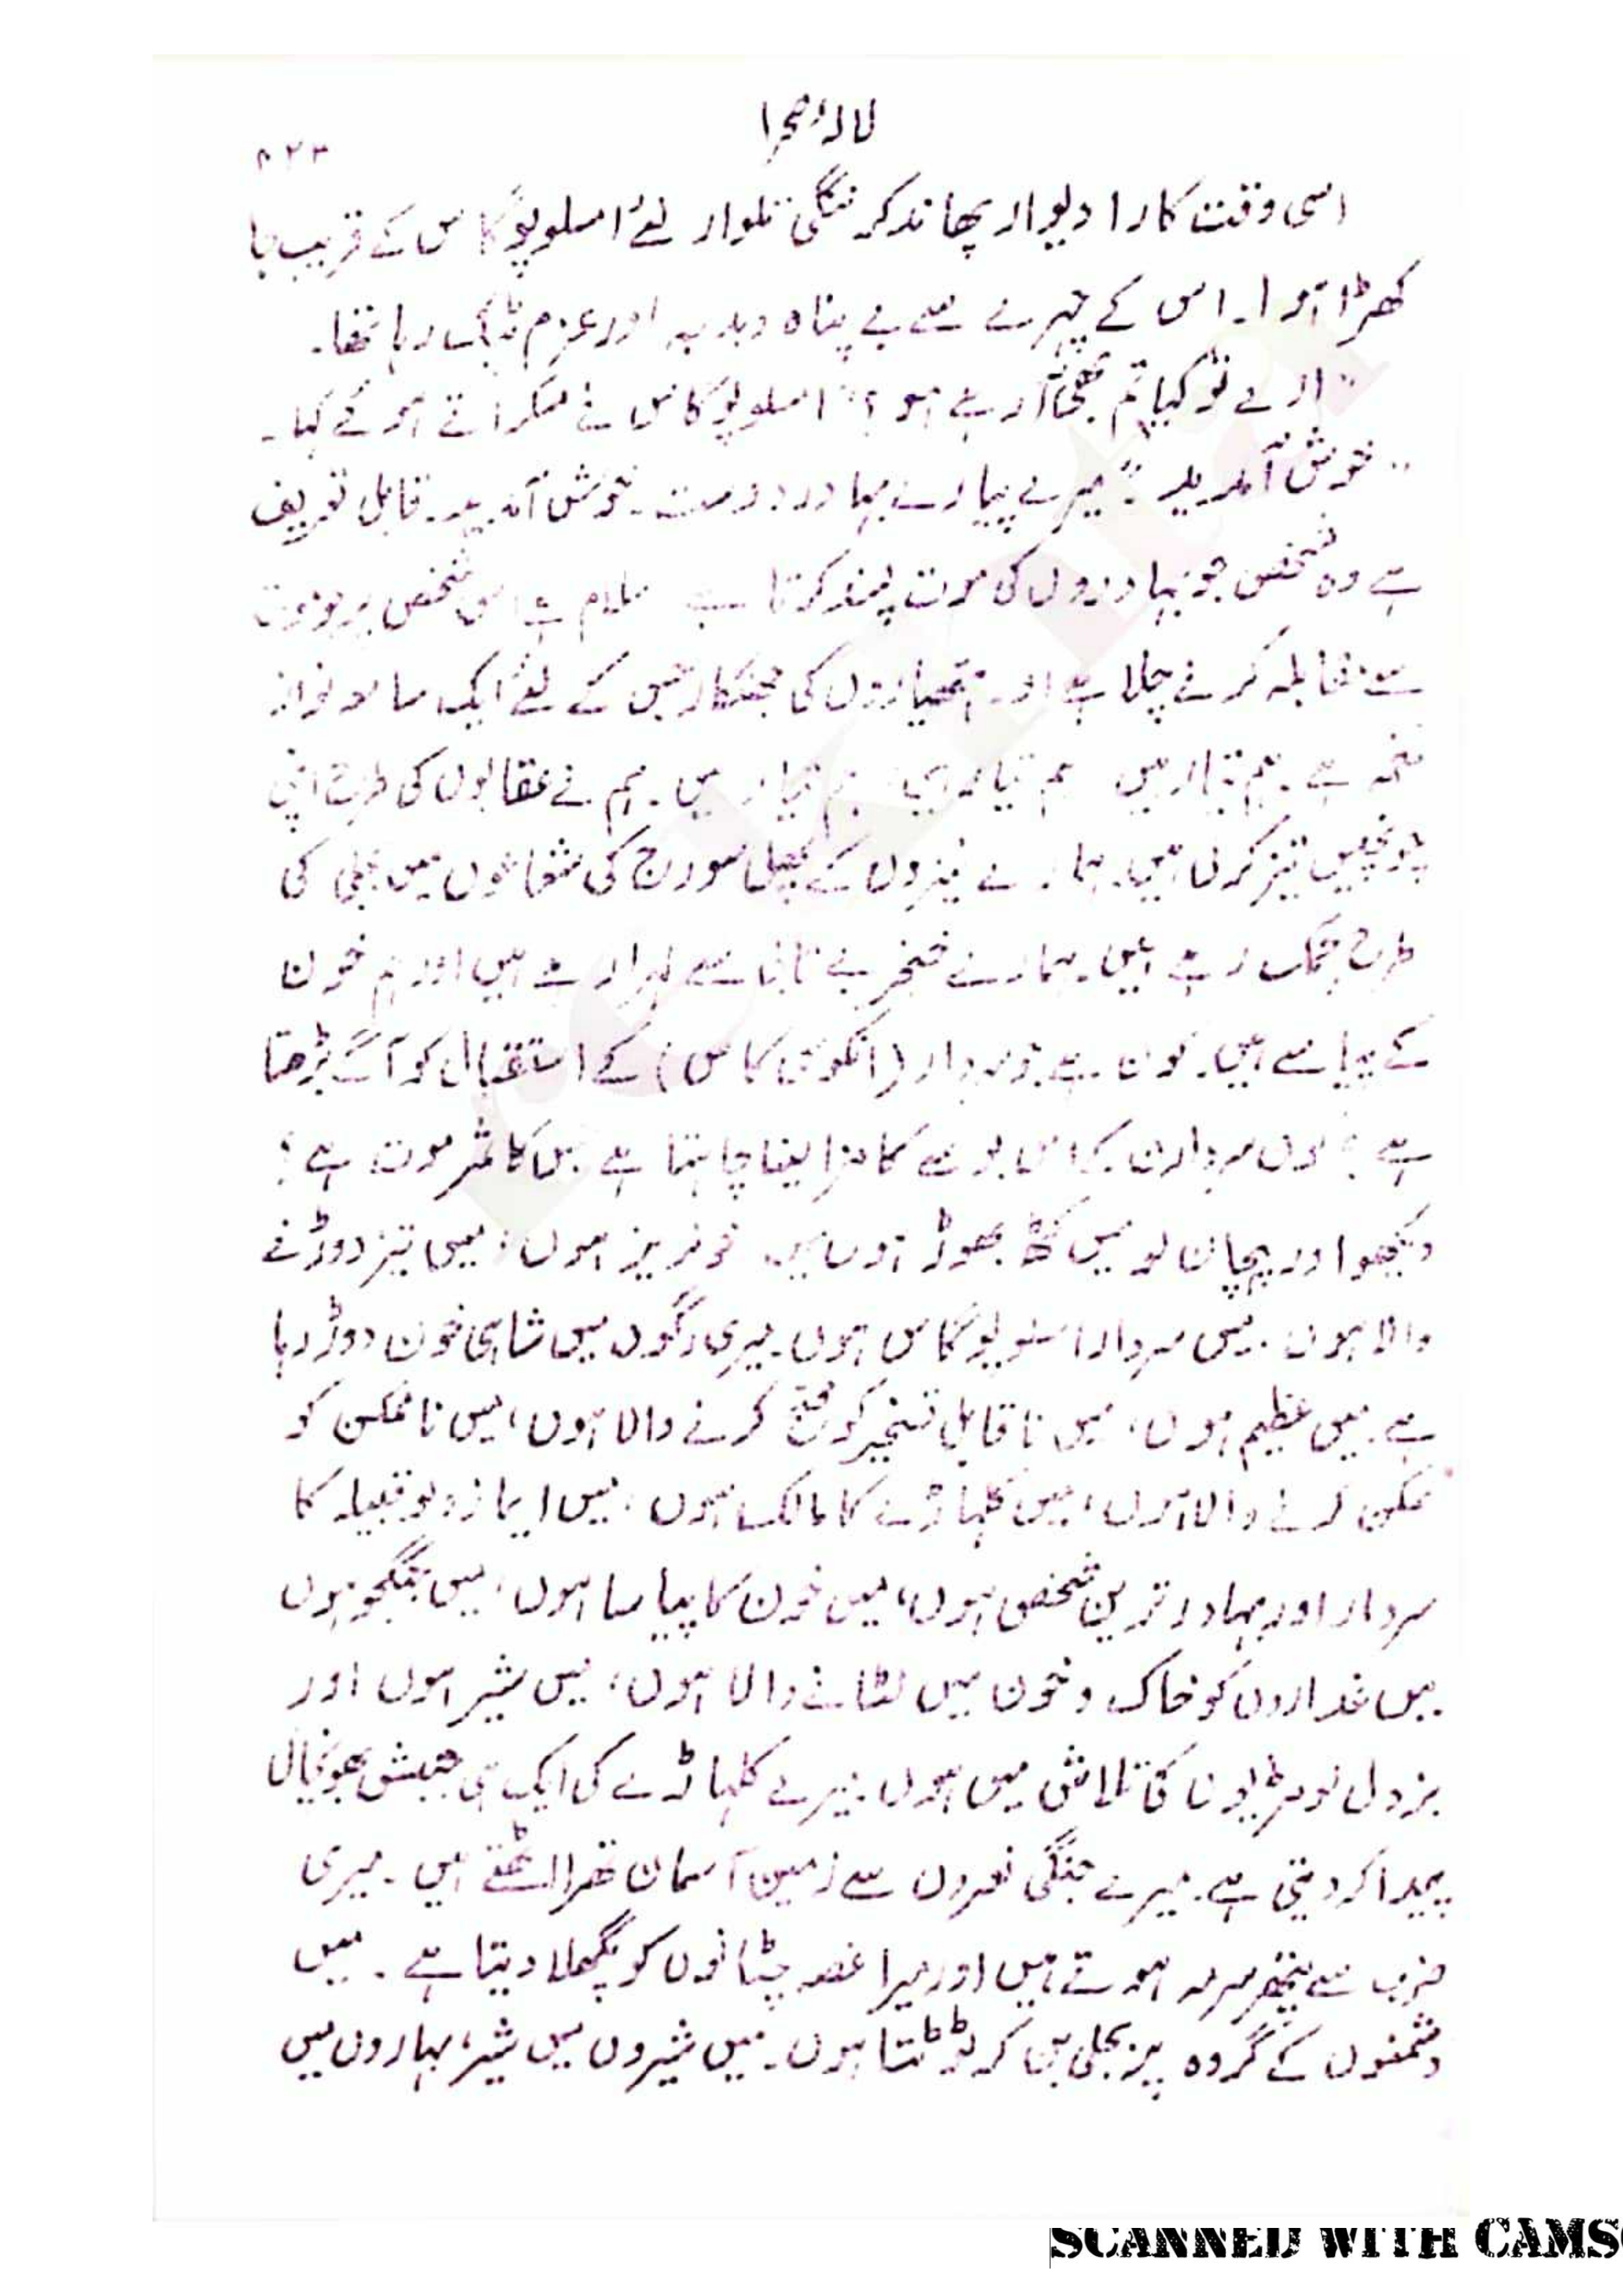 لالۂ صحرا
۲۲۳
اسی وقت کارا دیوار پھاند کر ننگی تلوار لئے امسلوپوگاس کے قریب جا
کھڑا ہوا۔ اس کے چہرے سے بے پناہ دبدبہ اور عزم ٹپک رہا تھا۔
"ارے تو کیا تم بھی آ رہے ہو؟" امسلوپوگاس نے مسکراتے ہوئے کہا۔
"خوش آمدید! میرے پیارے بہادر دوست۔ خوش آمدید۔ قابل تعریف
ہے وہ شخص جو بہادروں کی موت پسند کرتا ہے سلام ہے اس شخص پر جو موت
سے مقابلہ کرنے چلا ہے اور ہتھیاروں کی جھنکار جس کے لئے ایک سامعہ نواز
نغمہ ہے۔ ہم تیار ہیں ہم تیار ہیں ہم تیار ہیں۔ ہم نے عقابوں کی طرح اپنی
چونچیں تیز کر لی ہیں۔ ہمارے نیزوں کے پھل سورج کی شعاعوں میں بجلی کی
طرح چمک رہے ہیں۔ ہمارے خنجر بے تابی سے لہرا رہے ہیں اور ہم خون
کے پیاسے ہیں۔ کون ہے جو سردار (انکوسی کاس) کے استقبال کو آگے بڑھتا
ہے؟ کون سردارن کے اس بوسے کا مزا لینا چاہتا ہے جس کا ثمر موت ہے؟
دیکھو اور پہچان لو میں کٹھ پھوڑ ہوں میں خونریز ہوں، میں تیز دوڑنے
والا ہوں۔ میں سردار امسلوپوگاس ہوں۔ میری رگوں میں شاہی خون دوڑ رہا
ہے۔ میں عظیم ہوں، میں ناقابل تسخیر کو فتح کرنے والا ہوں، میں ناممکن کو
ممکن کرنے والا ہوں، میں کلہاڑے کا مالک ہوں، میں امازولو قبیلہ کا
سردار اور بہادر ترین شخص ہوں، میں خون کا پیاسا ہوں، میں جنگجو ہوں
میں غداروں کو خاک و خون میں لٹانے والا ہوں، میں شیر ہوں اور
بزدل لومڑیوں کی تلاش میں ہوں۔ میرے کلہاڑے کی ایک ہی جنبش بھونچال
پیدا کر دیتی ہے۔ میرے جنگی نعروں سے زمین آسمان تھرا اٹھتے ہیں۔ میری
ضرب سے پتھر سرمہ ہوتے ہیں اور میرا غصہ چٹانوں کو پگھلا دیتا ہے۔ میں
دشمنوں کے گروہ پر بجلی بن کر ٹوٹتا ہوں۔ میں شیروں میں شیر، بہاروں میں
SCANNED WITH CAMS